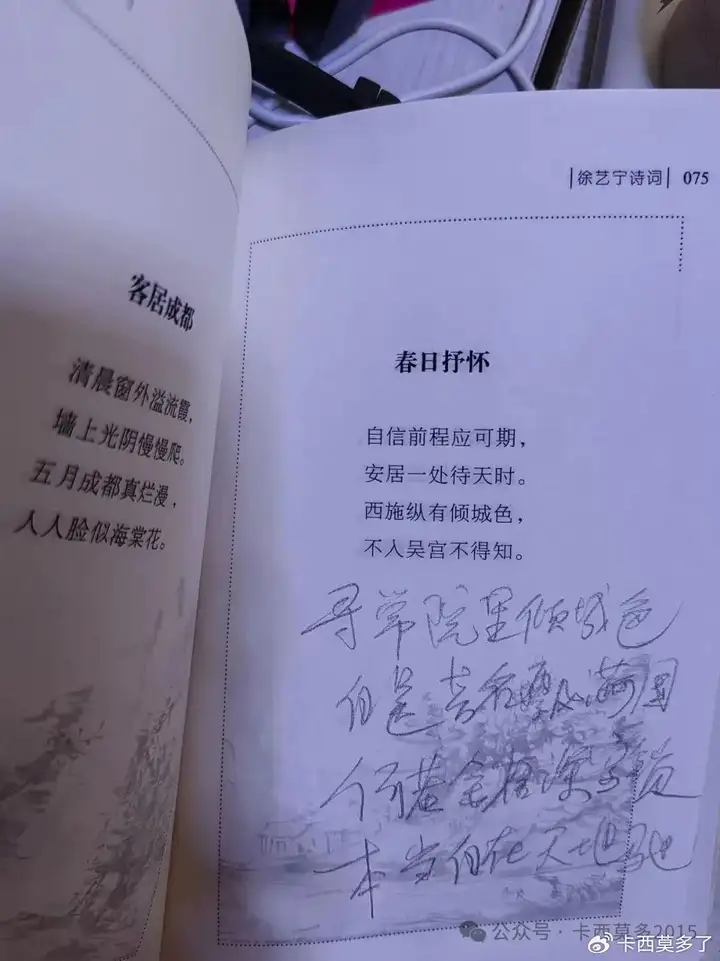 客居成都
清晨窗外溢流霞，
墙上光阴慢慢爬。
五月成都真烂漫，
人人脸似海棠花。
|徐艺宁诗词| 075
春日抒怀
自信前程应可期，
安居一处待天时。
西施纵有倾城色，
不入吴宫不得知。
寻常院里倾城色
但是芳名飘满园
何苦金
本当自在天地驰
公众号·卡西莫多2015
卡西莫多了